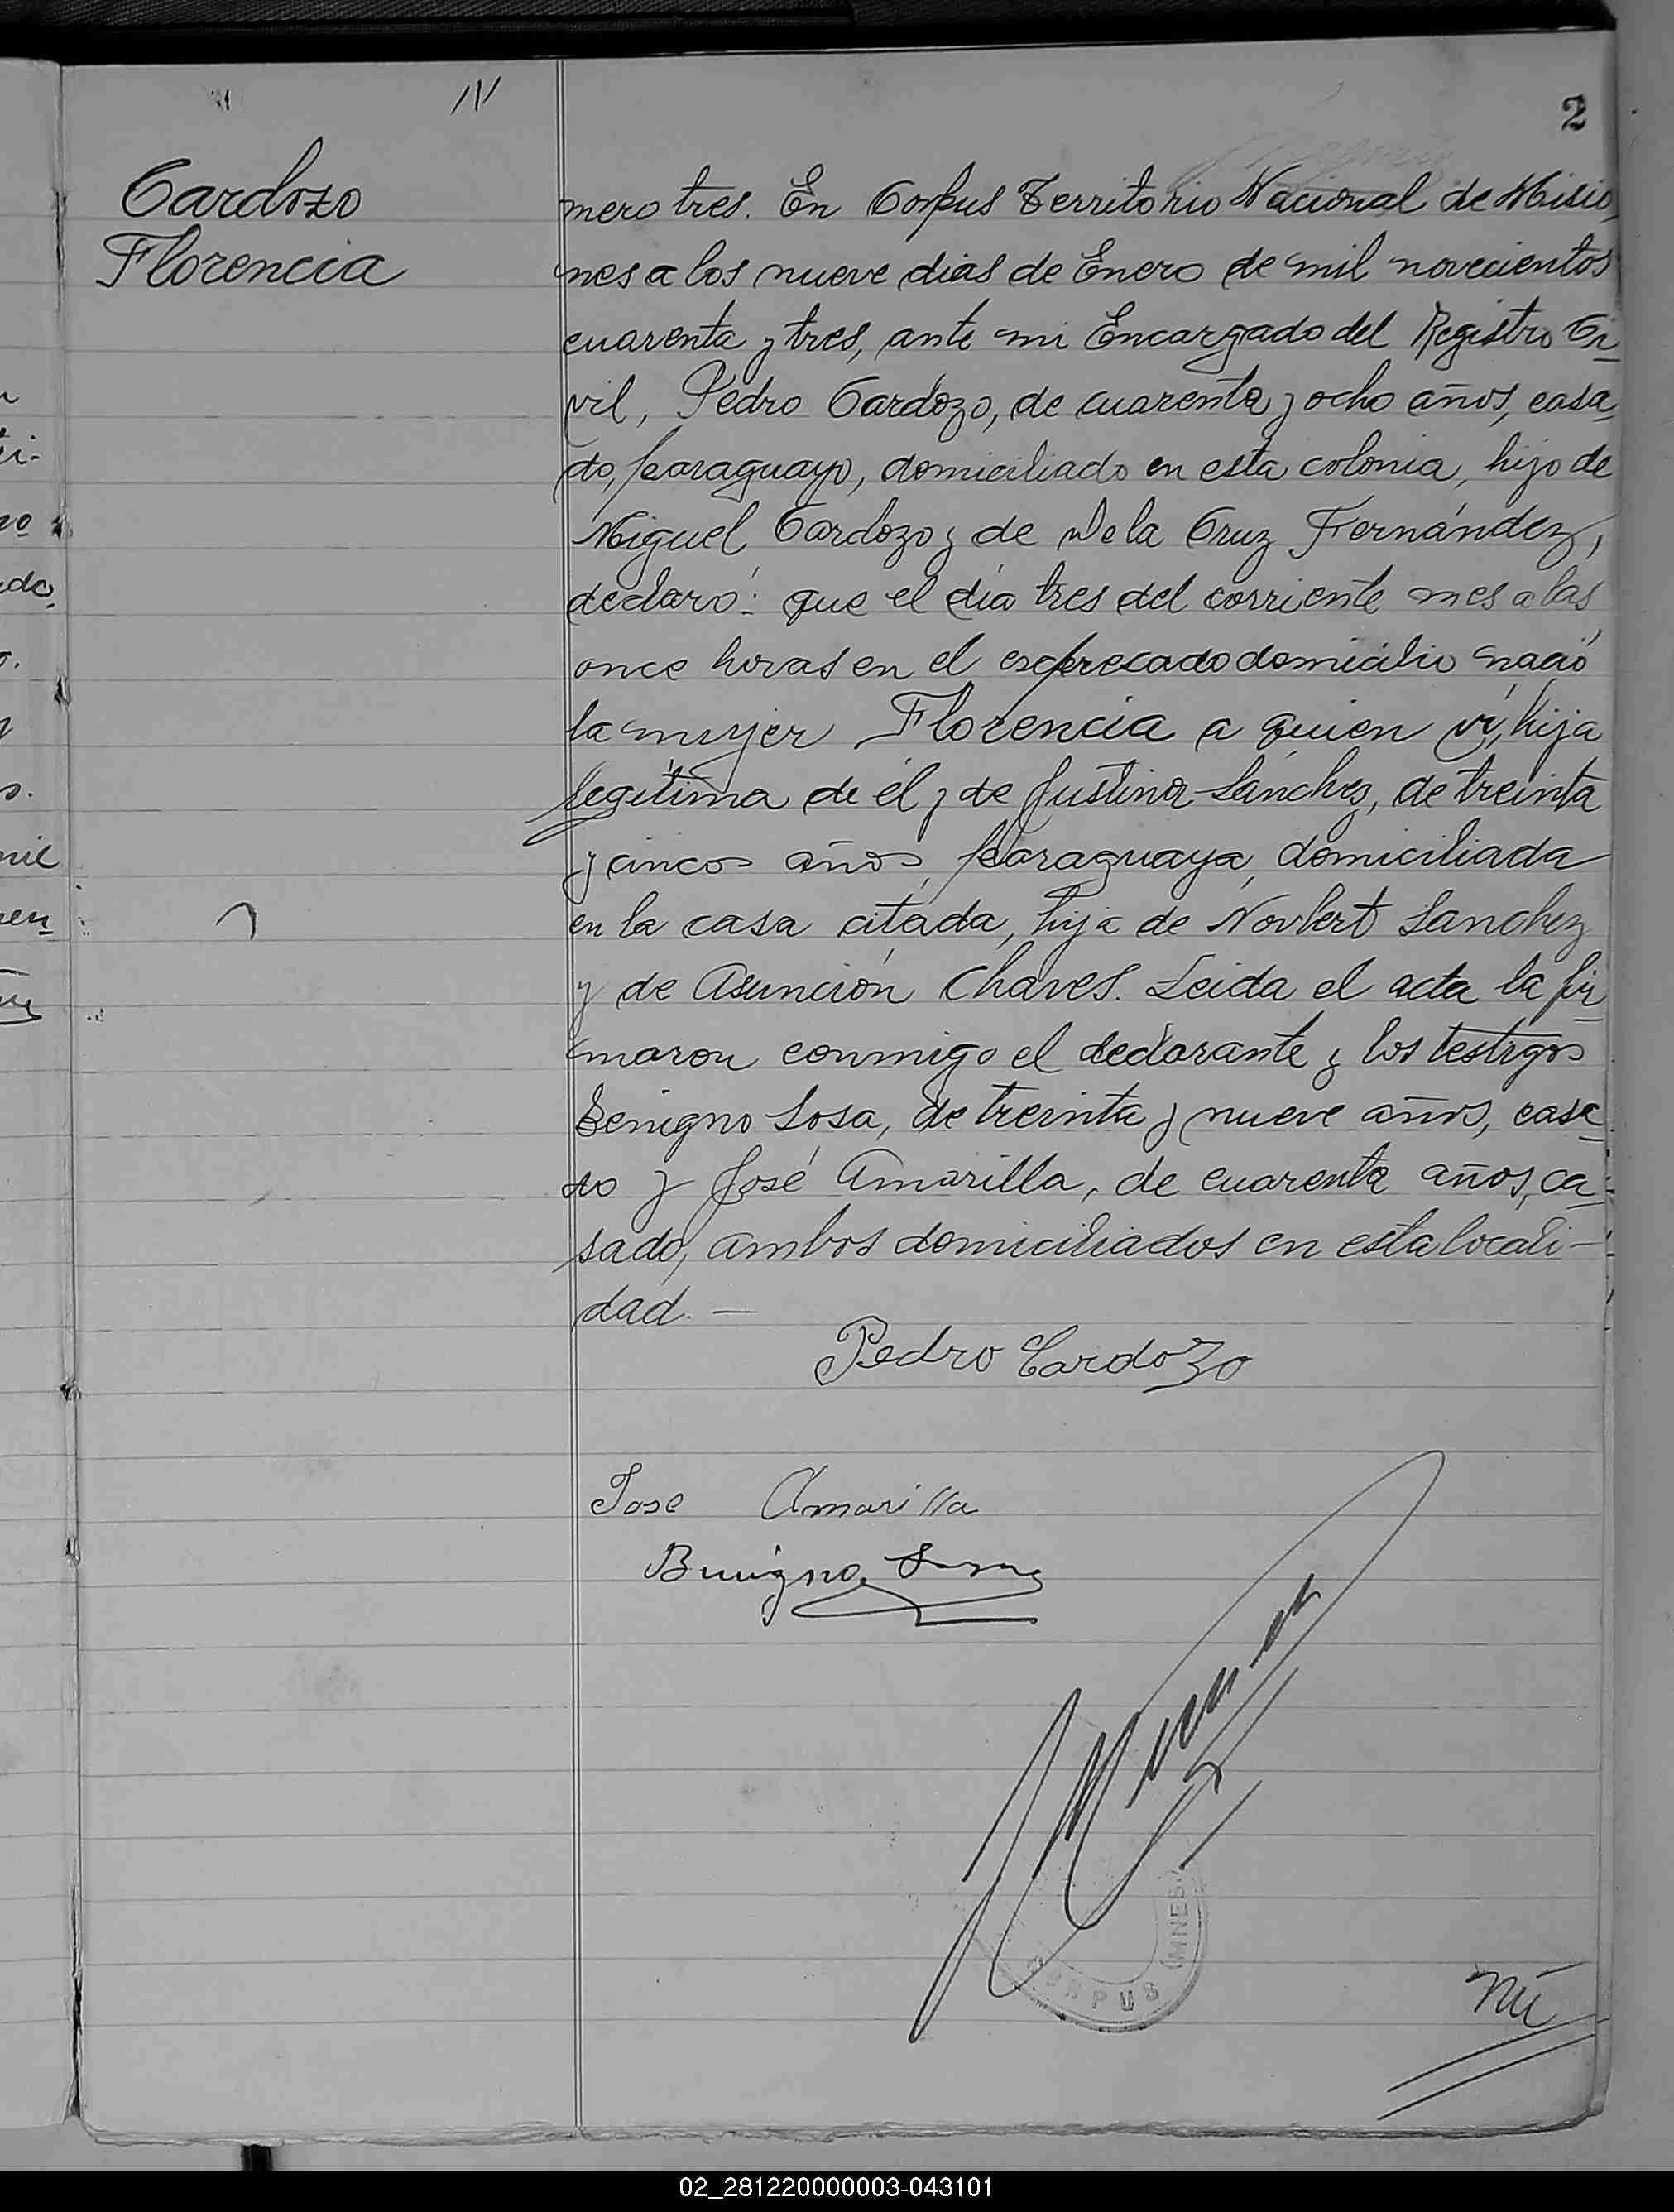 2
Cardozo
Florencia
mero tres. En Corpus Territorio Nacional de Misio
nes a los nueve dias de Enero de mil novecientos
cuarenta y tres, ante mi Encargado del Registro Ci
vil, Pedro Cardozo, de cuarenta y ocho años, casa
do, paraguayo, domiciliado en esta colonia, hijo de
Miguel Cardozo y de De la Cruz Fernández,
declaró: que el día tres del corriente mes a las
once horas en el expresado domicilio nació
la mujer Florencia a quien ví, hija
legítima de él y de Justina Sánchez, de treinta
y cinco años, paraguaya, domiciliada
en la casa citada, hija de Norbert Sanchez
y de Asunción Chaves. Leida el acta la fir
maron conmigo el declarante y los testigos
Benigno Sosa, de treinta y nueve años, casa
do y José Amarilla, de cuarenta años, ca
sado, ambos domiciliados en esta locali-
dad. —
Pedro Cardozo
Jose Amarilla
Benigno Sosa
CORPUS (MNES)
Nú
02_281220000003-043101